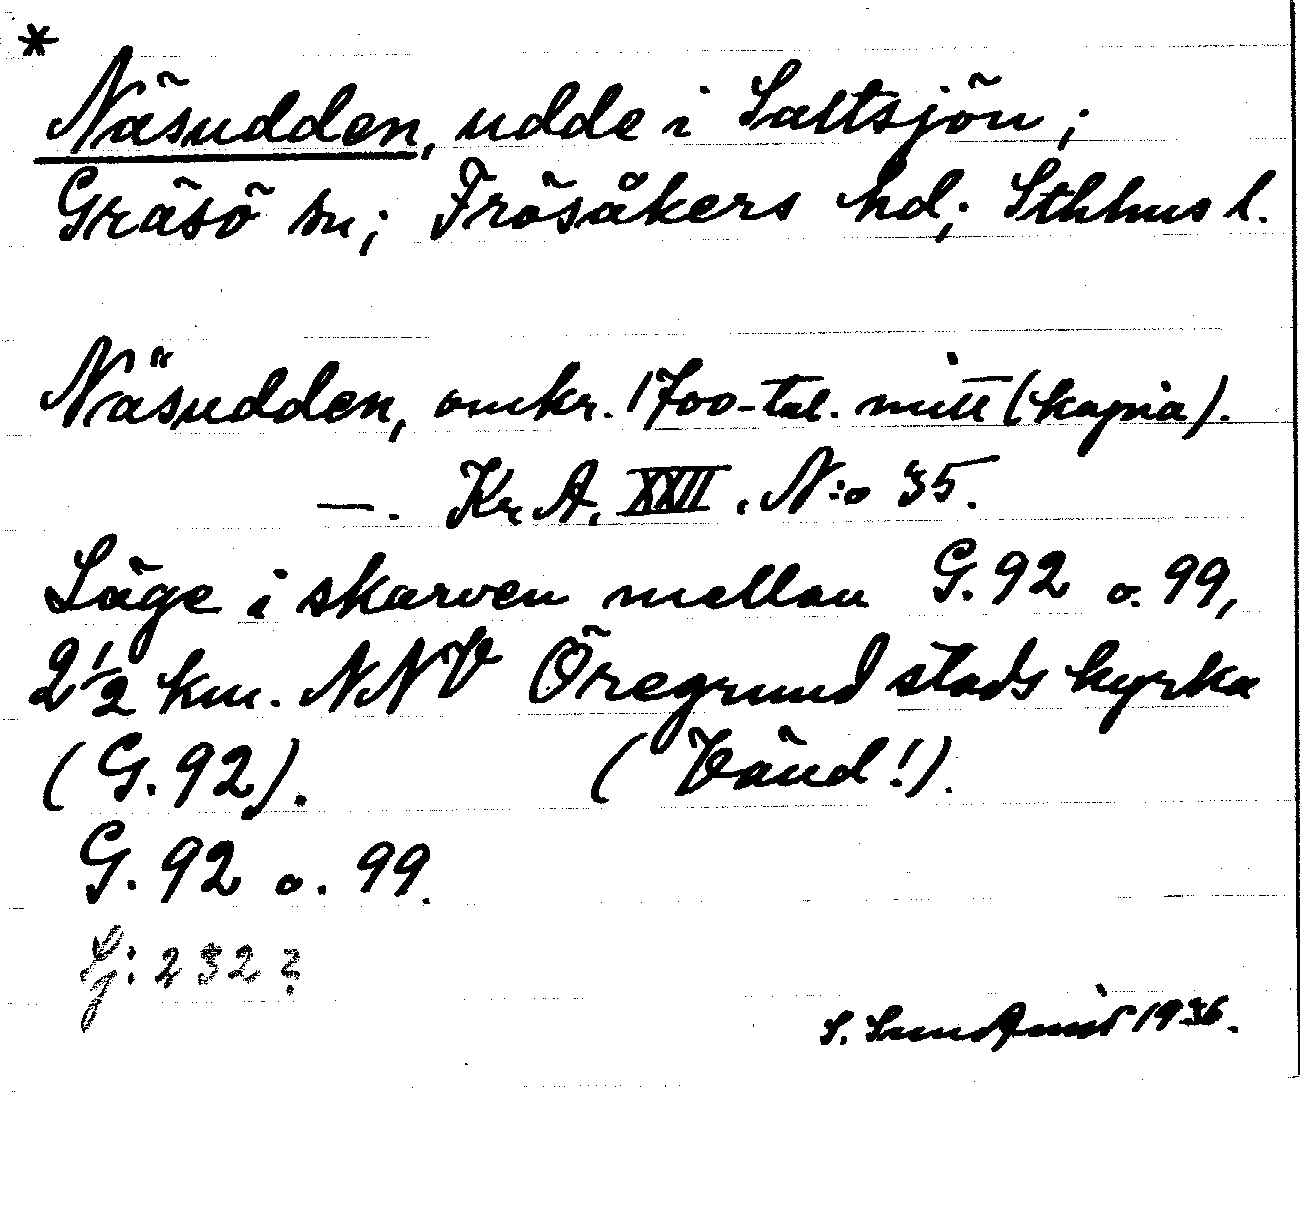 *
Näsudden, udde i Saltsjön;
Gräsö sn; Frösåkers hd; Sthlms l.
Näsudden, omkr. 1700-tal. mitt (kopia).
—. Kr. A. XXII. N:o 35.
Läge i skarven mellan G. 92 o. 99,
2½ km. NNV Öregrund stads kyrka
(G. 92). (Vänd!).
G. 92 o. 99.
Sj: 232?
S. Sundqvist 1936.